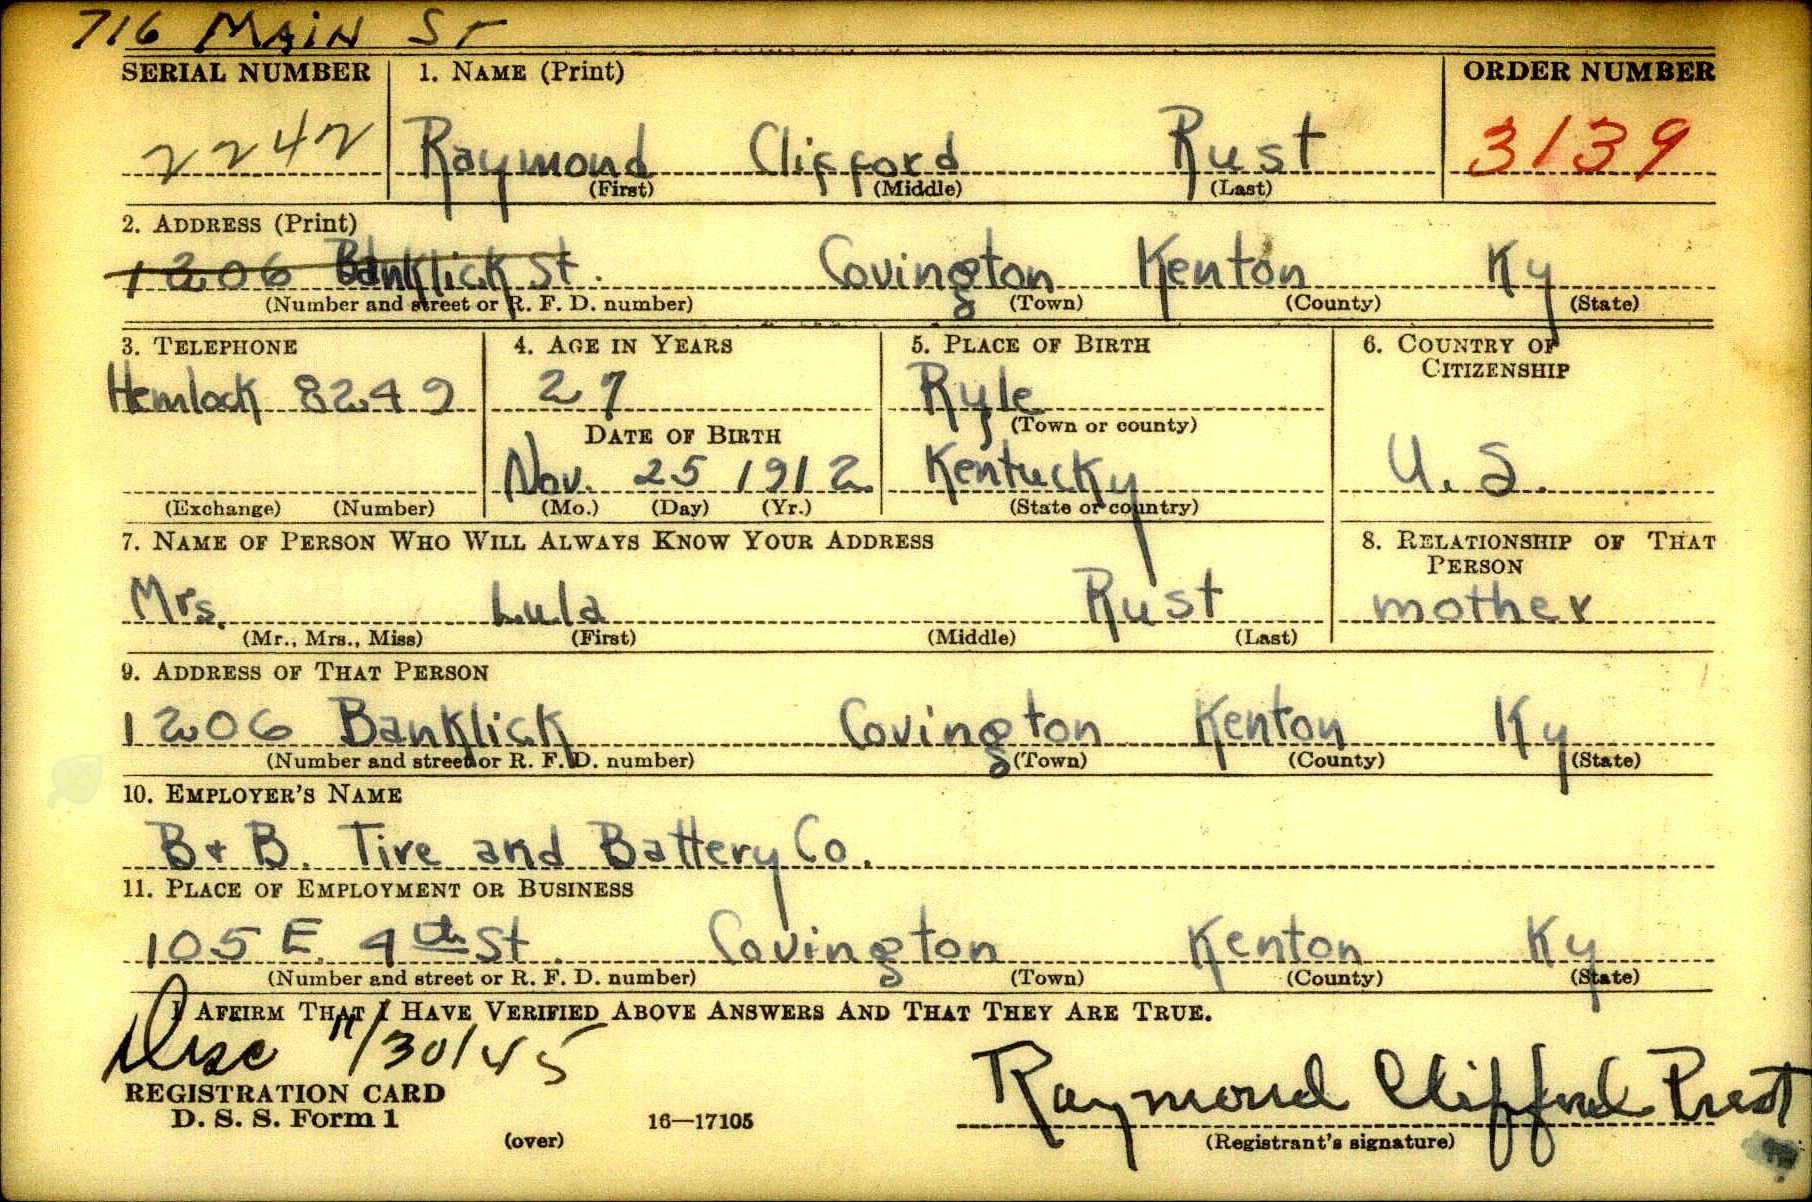 716 MAIN ST
SERIAL NUMBER 1. NAME (Print) ORDER NUMBER
2242 Raymond Clifford Rust 3139
(First) (Middle) (Last)
2. ADDRESS (Print)
1206 Banklick St. Covington Kenton Ky
(Number and street or R. F. D. number) (Town) (County) (State)
3. TELEPHONE 4. AGE IN YEARS 5. PLACE OF BIRTH 6. COUNTRY OF
CITIZENSHIP
Hemlock 8249 27 Ryle
(Town or county)
DATE OF BIRTH
Nov. 25 1912 Kentucky U. S.
(Exchange) (Number) (Mo.) (Day) (Yr.) (State or country)
7. NAME OF PERSON WHO WILL ALWAYS KNOW YOUR ADDRESS 8. RELATIONSHIP OF THAT
PERSON
Mrs. Lula Rust mother
(Mr., Mrs., Miss) (First) (Middle) (Last)
9. ADDRESS OF THAT PERSON
1206 Banklick Covington Kenton Ky
(Number and street or R. F. D. number) (Town) (County) (State)
10. EMPLOYER'S NAME
B + B. Tire and Battery Co.
11. PLACE OF EMPLOYMENT OR BUSINESS
105 E. 4th St. Covington Kenton Ky
(Number and street or R. F. D. number) (Town) (County) (State)
I AFFIRM THAT I HAVE VERIFIED ABOVE ANSWERS AND THAT THEY ARE TRUE.
Disc 11/30/45
Raymond Clifford Rust
REGISTRATION CARD
D. S. S. Form 1 16—17105
(over) (Registrant's signature)